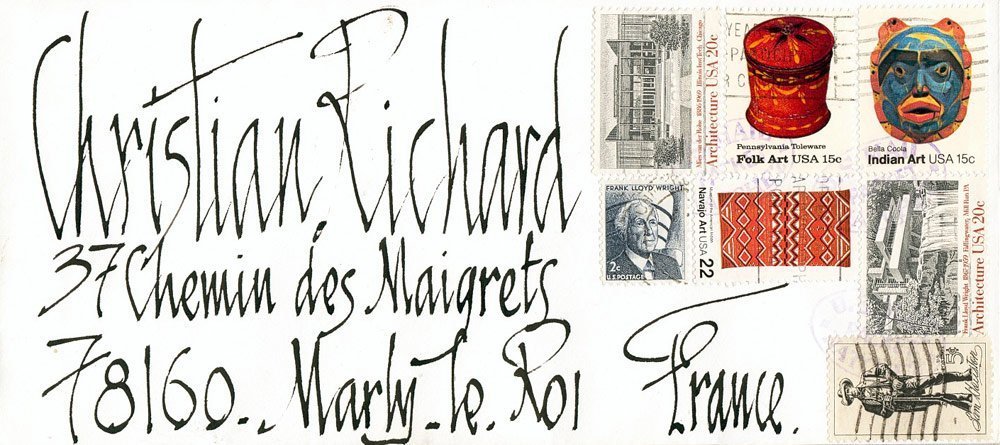 Christian Richard
37 Chemin des Maigrets
78160., Marly-le-Roi
France.
Mies van der Rohe 1886-1969 Illinois Inst Tech Chicago
Architecture USA 20c
Pennsylvania Toleware
Folk Art USA 15c
Bella Coola
Indian Art USA 15c
FRANK LLOYD WRIGHT
2c
U.S. POSTAGE
Navajo Art USA 22
Frank Lloyd Wright 1867-1959 Fallingwater Mill Run PA
Architecture USA 20c
5c